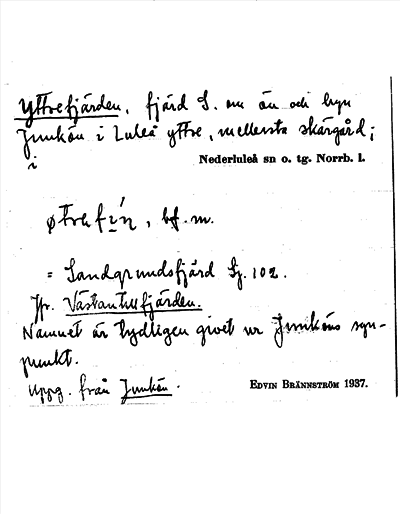 Yttrefjärden, fjärd S. om ön och byn
Junkön i Luleå yttre, mellersta skärgård;
i Nederluleå sn o. tg. Norrb. l.
bf. m.
= Sandgrundsfjärd Sj. 102.
Jfr. Västantillfjärden.
Namnet är tydligen givet ur Junköns syn-
punkt.
Uppg. från Junkön. EDVIN BRÄNNSTRÖM 1937.